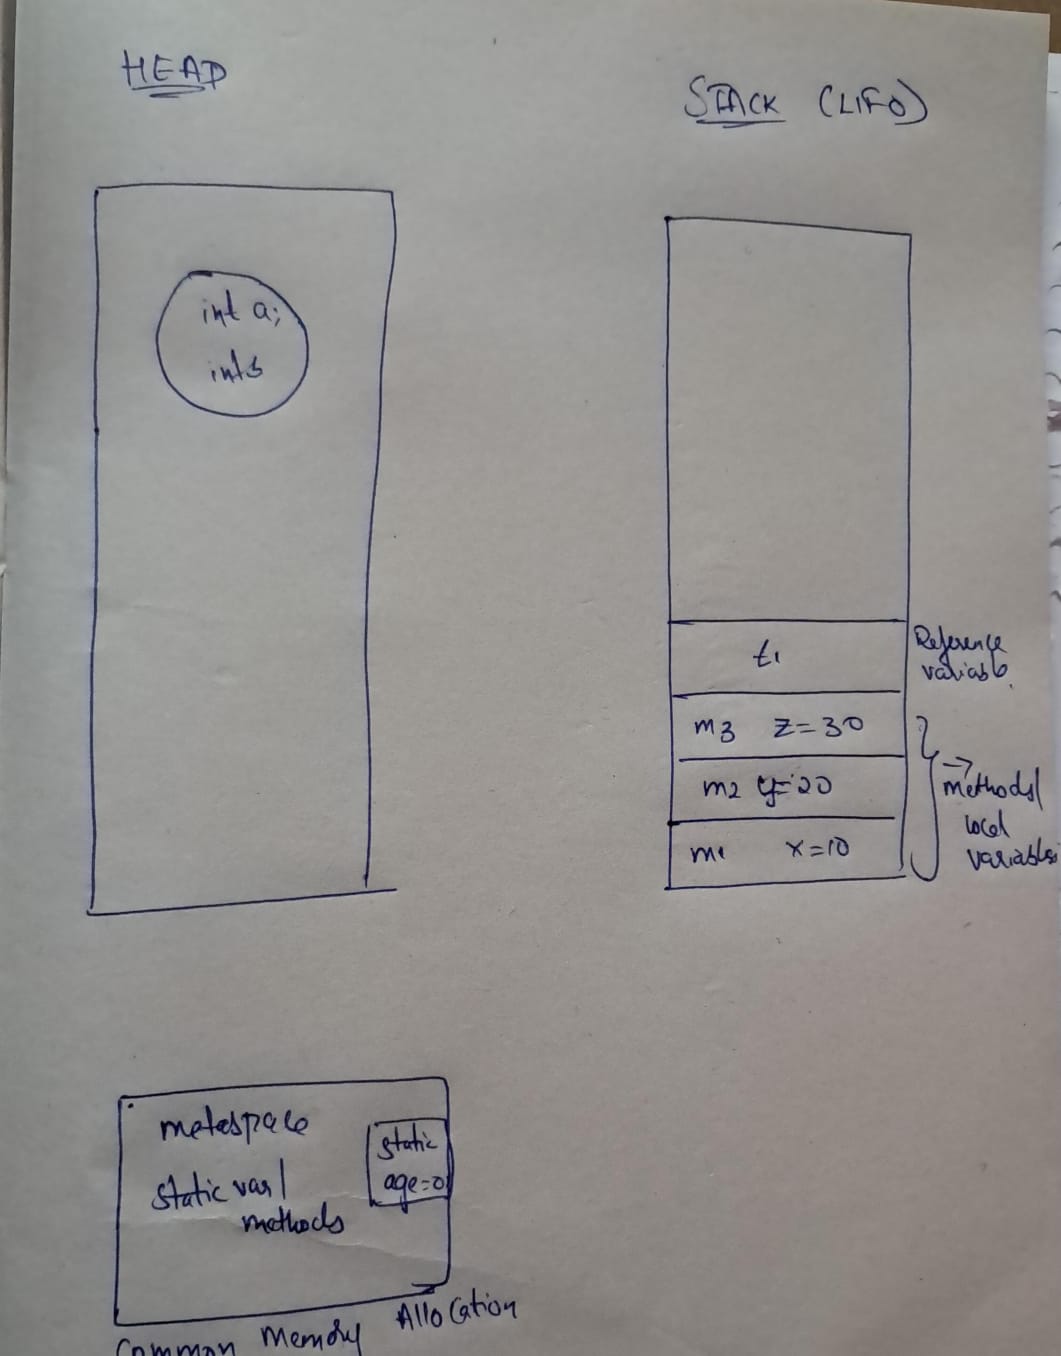 HEAP
STACK (LIFO)
int a;
int b
t1
Reference
variable.
m3 z=30
m2 y=20
m1 x=10
→
methods/
local
variables
metaspace
static var/
methods
static
age=0
Common Memory Allocation